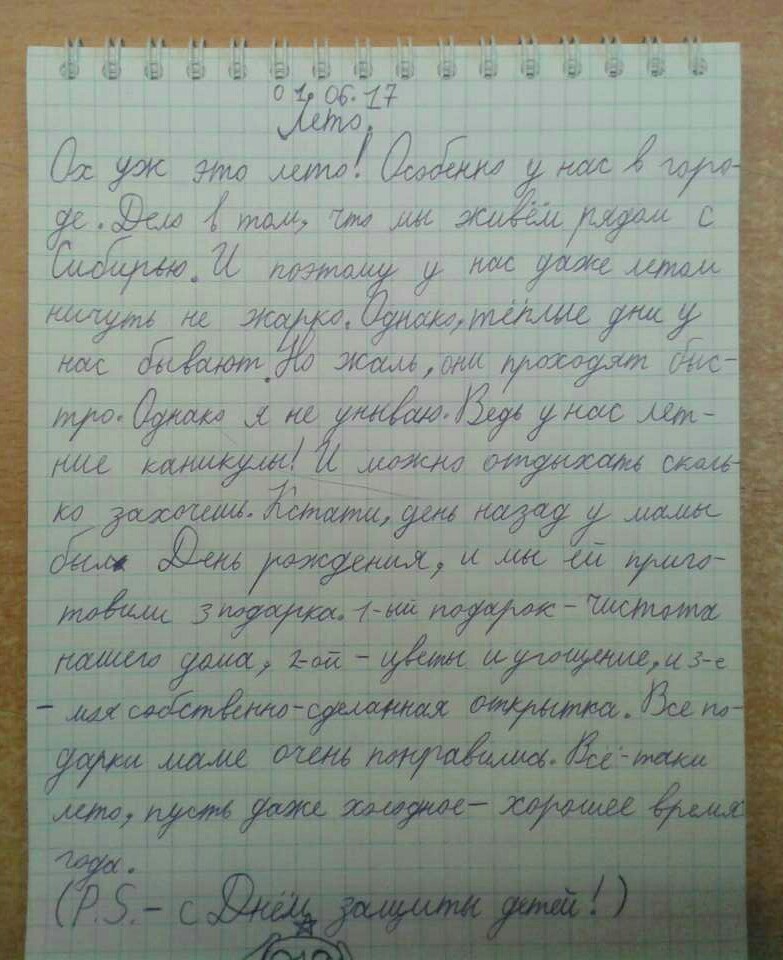 01.06.17
Лето.
Ох уж это лето! Особенно у нас в горо-
де. Дело в том, что мы живём рядом с
Сибирью. И поэтому у нас даже летом
ничуть не жарко. Однако, тёплые дни у
нас бывают. Но жаль, они проходят быс-
тро. Однако я не унываю. Ведь у нас лет-
ние каникулы! И можно отдыхать сколь-
ко захочешь. Кстати, день назад у мамы
был День рождения, и мы ей приго-
товили 3 подарка. 1-ый подарок - чистота
нашего дома, 2-ой - цветы и угощение, и 3-е
- моя собственно-сделанная открытка. Все по-
дарки маме очень понравились. Всё-таки
лето, пусть даже холодное - хорошее время
года.
(P.S. - с Днём защиты детей!)